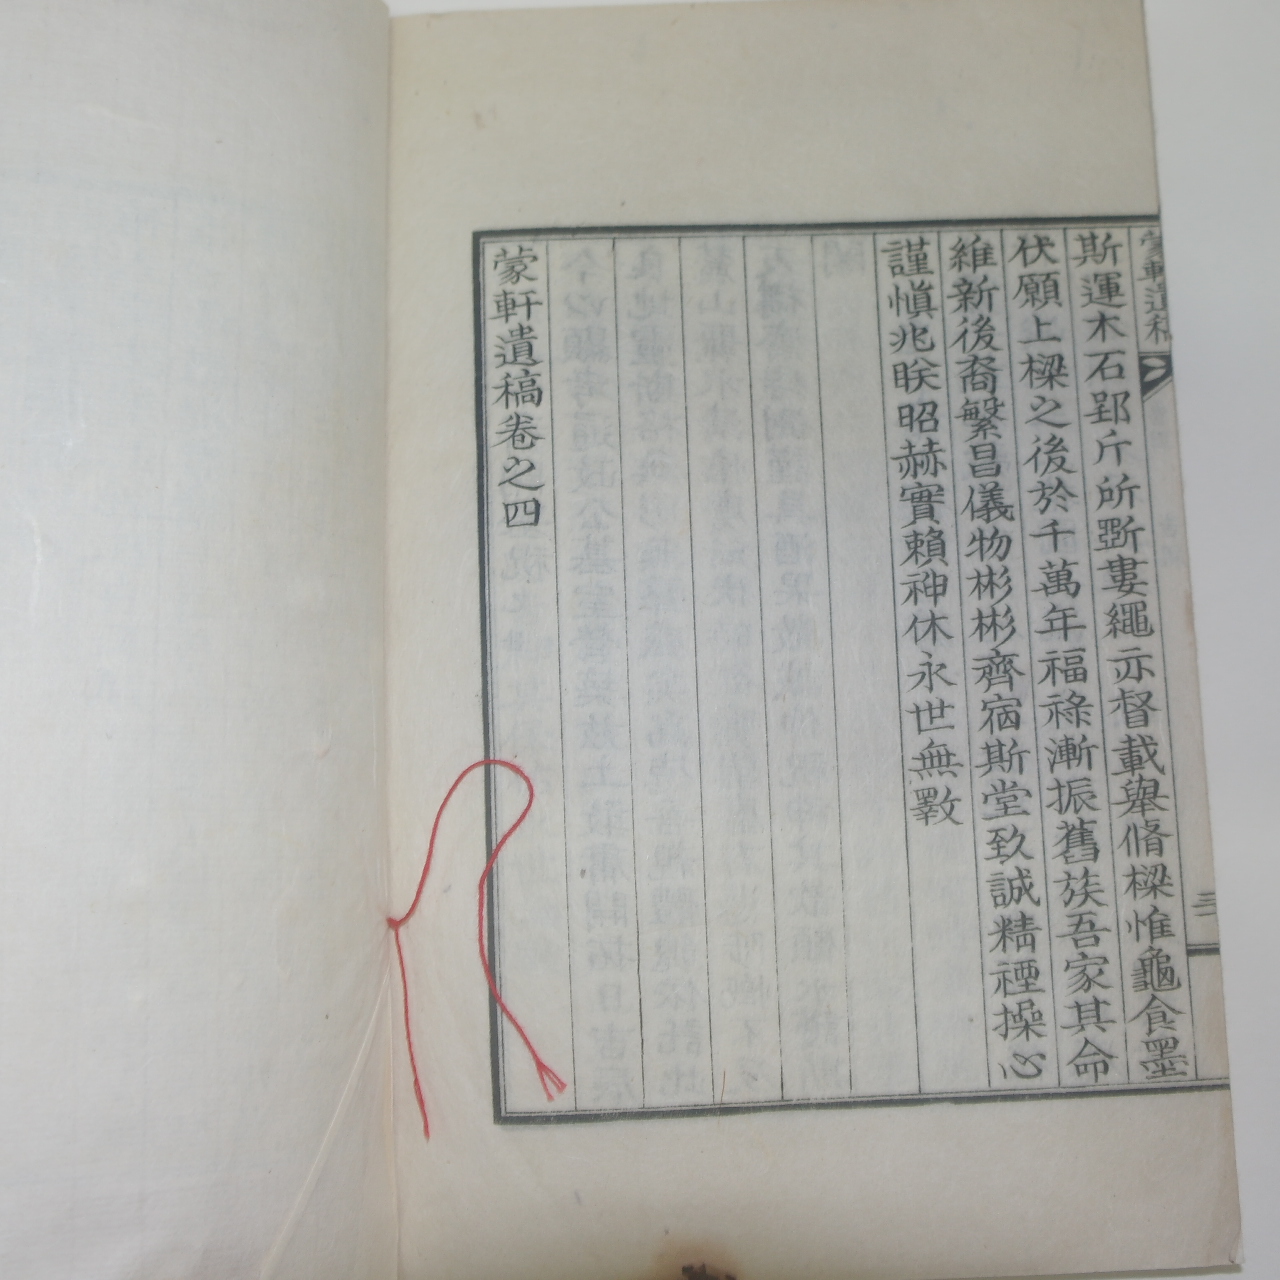 蒙軒遺稿
三
斯運木石郢斤所斲婁繩示督載舉脩樑惟龜食墨
伏願上樑之後於千萬年福祿漸振舊族吾家其命
維新後裔繁昌儀物彬彬齊宿斯堂致誠精禋操心
謹愼兆朕昭赫實賴神休永世無斁
蒙軒遺稿卷之四